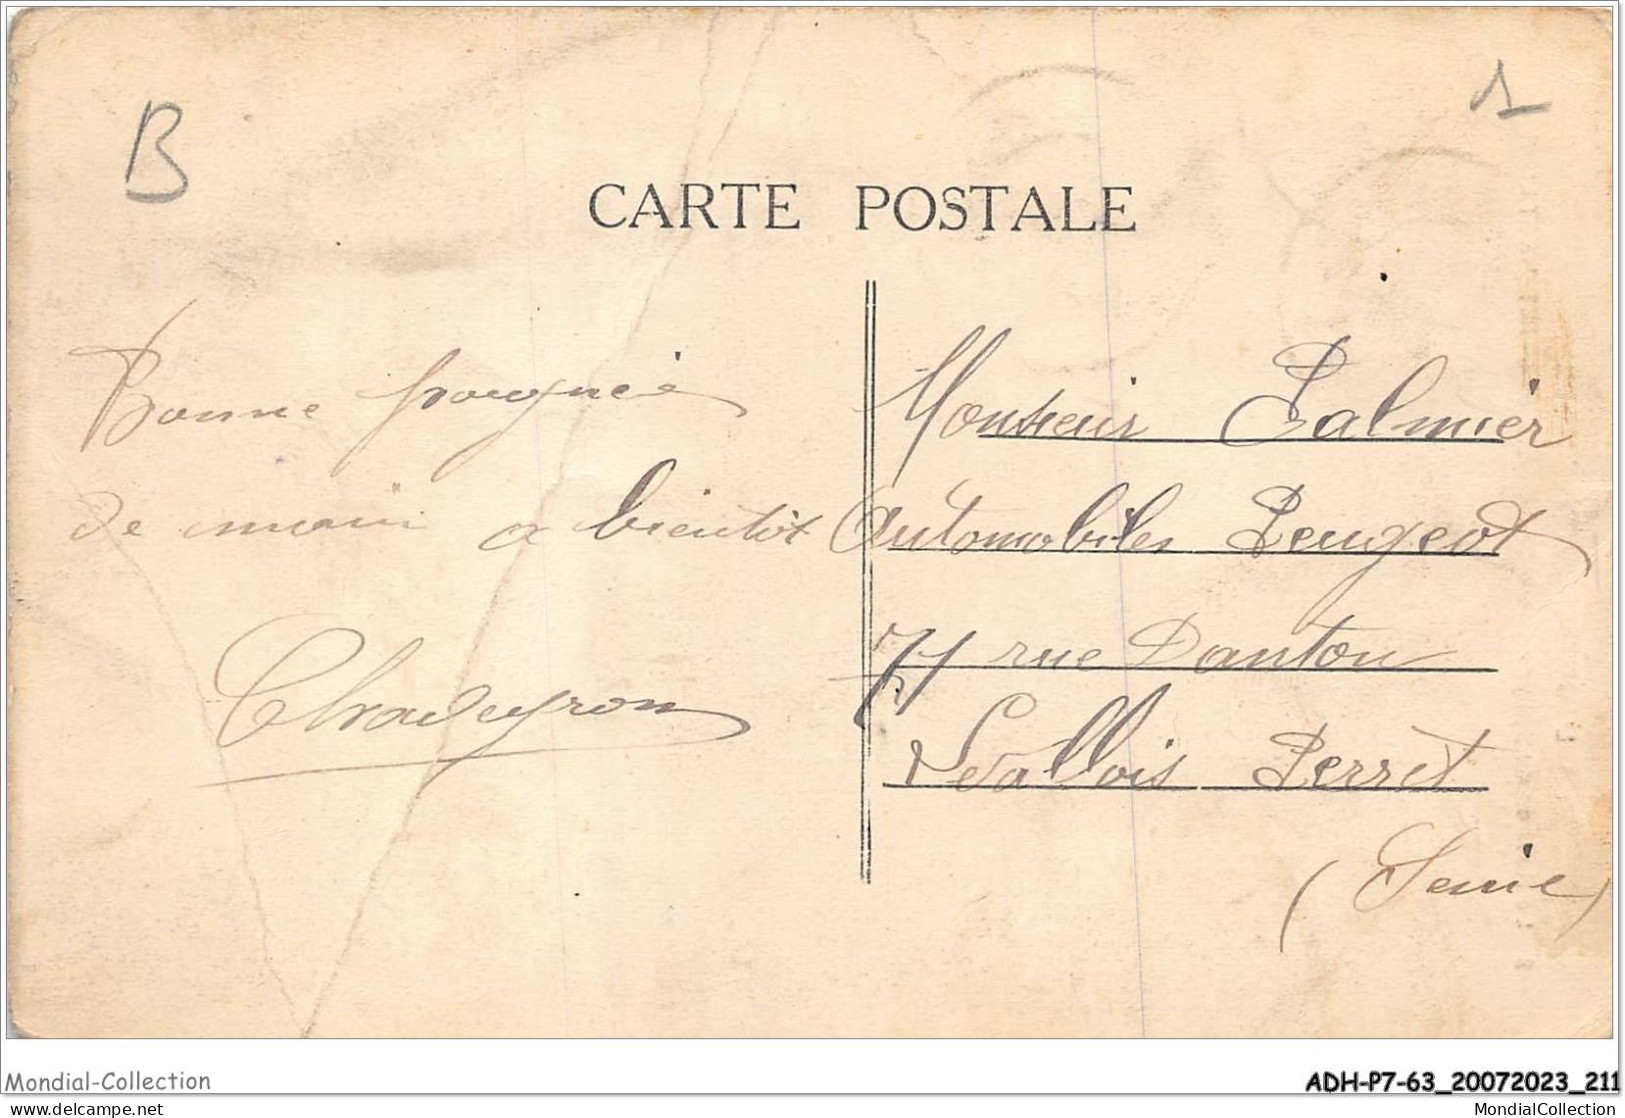 B
1
CARTE POSTALE
Bonne poignée
de main a bientôt
Chadeyron
Monsieur Palmier
Automobiles Peugeot
71 rue Danton
Levallois Perret
(Seine)
Mondial-Collection
ADH-P7-63_20072023_211
www.delcampe.net
MondialCollection